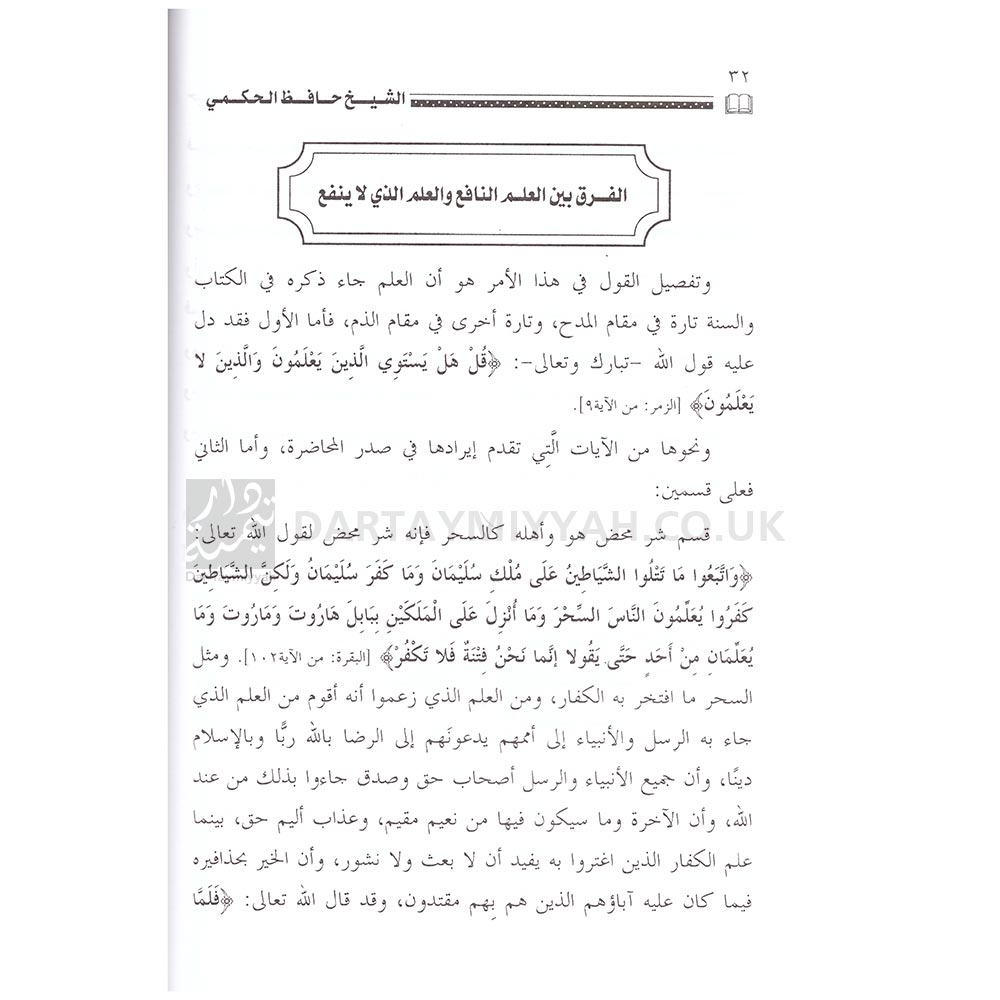 ٣٢
الشيخ حافظ الحكمي
الفرق بين العلم النافع والعلم الذي لا ينفع
وتفصيل القول في هذا الأمر هو أن العلم جاء ذكره في الكتاب
والسنة تارة في مقام المدح، وتارة أخرى في مقام الذم، فأما الأول فقد دل
عليه قول الله -تبارك وتعالى-: ﴿قُلْ هَلْ يَسْتَوِي الَّذِينَ يَعْلَمُونَ وَالَّذِينَ لا
يَعْلَمُونَ﴾ [الزمر: من الآية٩].
ونحوها من الآيات الَّتِي تقدم إيرادها في صدر المحاضرة، وأما الثاني
فعلى قسمين:
دار تيمية
DARTAYMIYYAH.CO.UK
قسم شر محض هو وأهله كالسحر فإنه شر محض لقول الله تعالى:
﴿وَاتَّبَعُوا مَا تَتْلُوا الشَّيَاطِينُ عَلَى مُلْكِ سُلَيْمَانَ وَمَا كَفَرَ سُلَيْمَانُ وَلَكِنَّ الشَّيَاطِينَ
كَفَرُوا يُعَلِّمُونَ النَّاسَ السِّحْرَ وَمَا أُنْزِلَ عَلَى الْمَلَكَيْنِ بِبَابِلَ هَارُوتَ وَمَارُوتَ وَمَا
يُعَلِّمَانِ مِنْ أَحَدٍ حَتَّى يَقُولا إِنَّما نَحْنُ فِتْنَةٌ فَلا تَكْفُرْ﴾ [البقرة: من الآية١٠٢]. ومثل
السحر ما افتخر به الكفار، ومن العلم الذي زعموا أنه أقوم من العلم الذي
جاء به الرسل والأنبياء إلى أممهم يدعونَهم إلى الرضا بالله ربًّا وبالإسلام
دينًا، وأن جميع الأنبياء والرسل أصحاب حق وصدق جاءوا بذلك من عند
الله، وأن الآخرة وما سيكون فيها من نعيم مقيم، وعذاب أليم حق، بينما
علم الكفار الذين اغتروا به يفيد أن لا بعث ولا نشور، وأن الخير بحذافيره
فيما كان عليه آباؤهم الذين هم بِهم مقتدون، وقد قال الله تعالى: ﴿فَلَمَّا